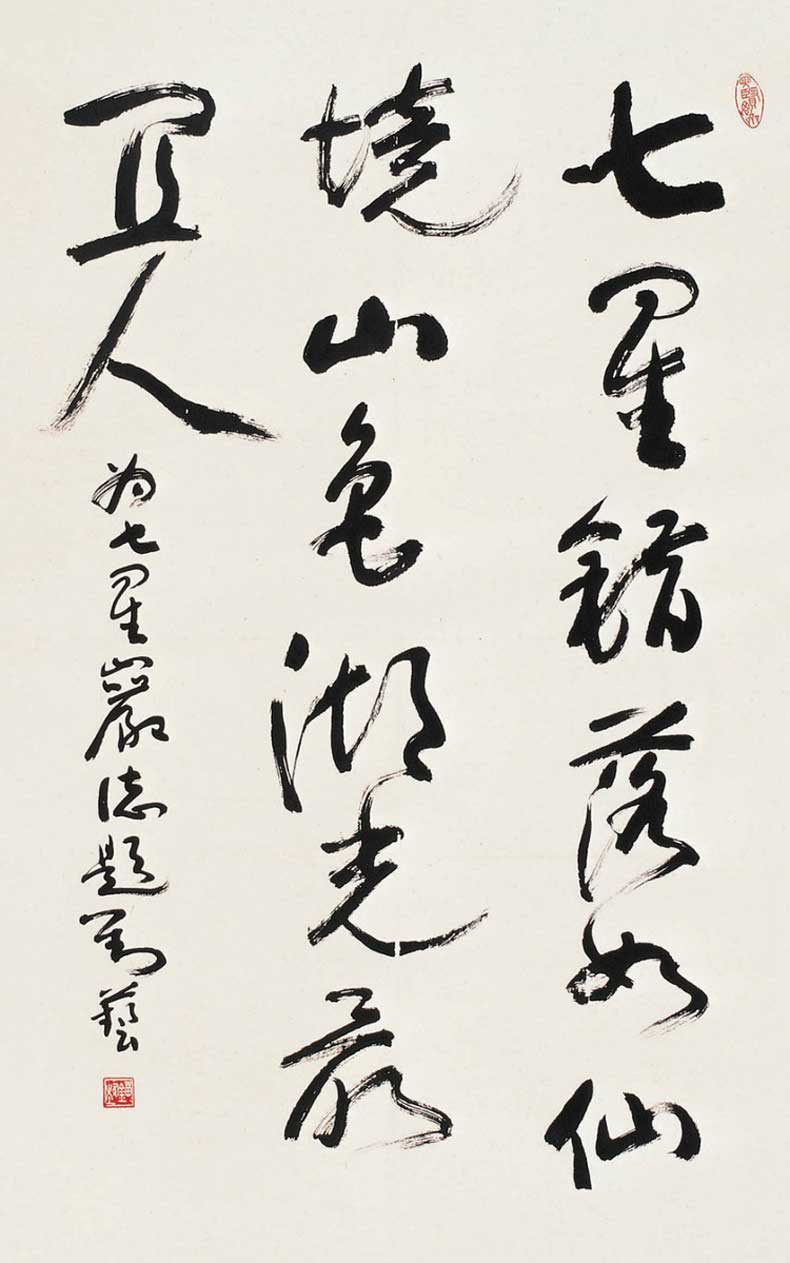 七星錯落如仙
境山色湖光最
宜人
为七星巖志題劉藝